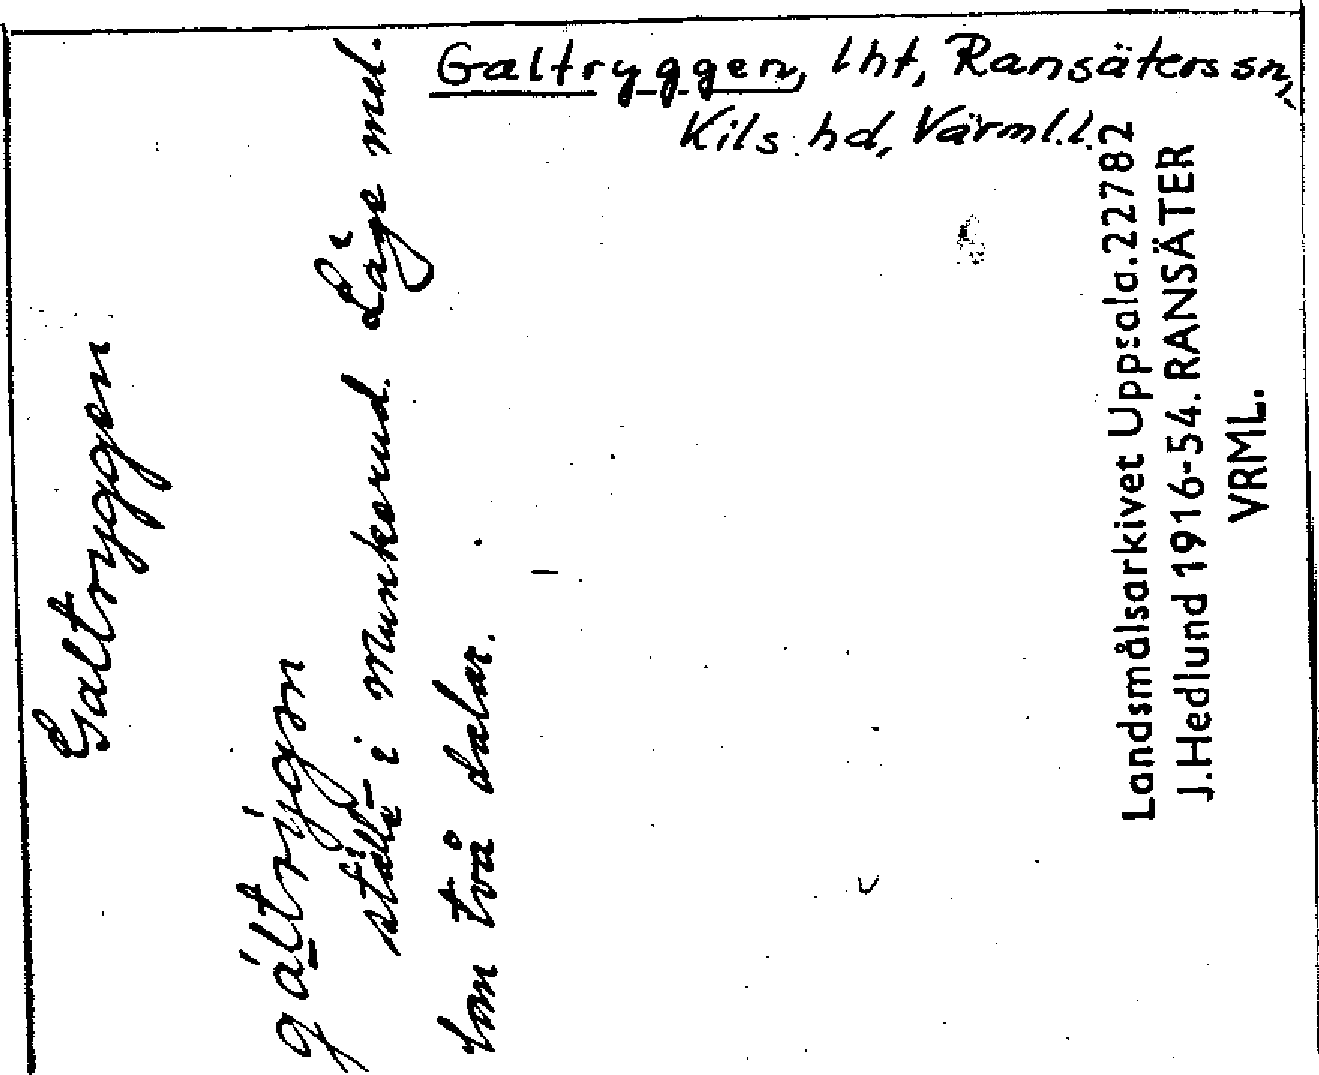 Galtryggen, lht, Ransäters sn,
Kils hd, Värml.l.
Galtryggen
gáltrýgen
ställe i Munkerud. Läge mel-
lom två dalar.
Landsmålsarkivet Uppsala. 22782
J.Hedlund 1916-54. RANSÄTER
VRML.